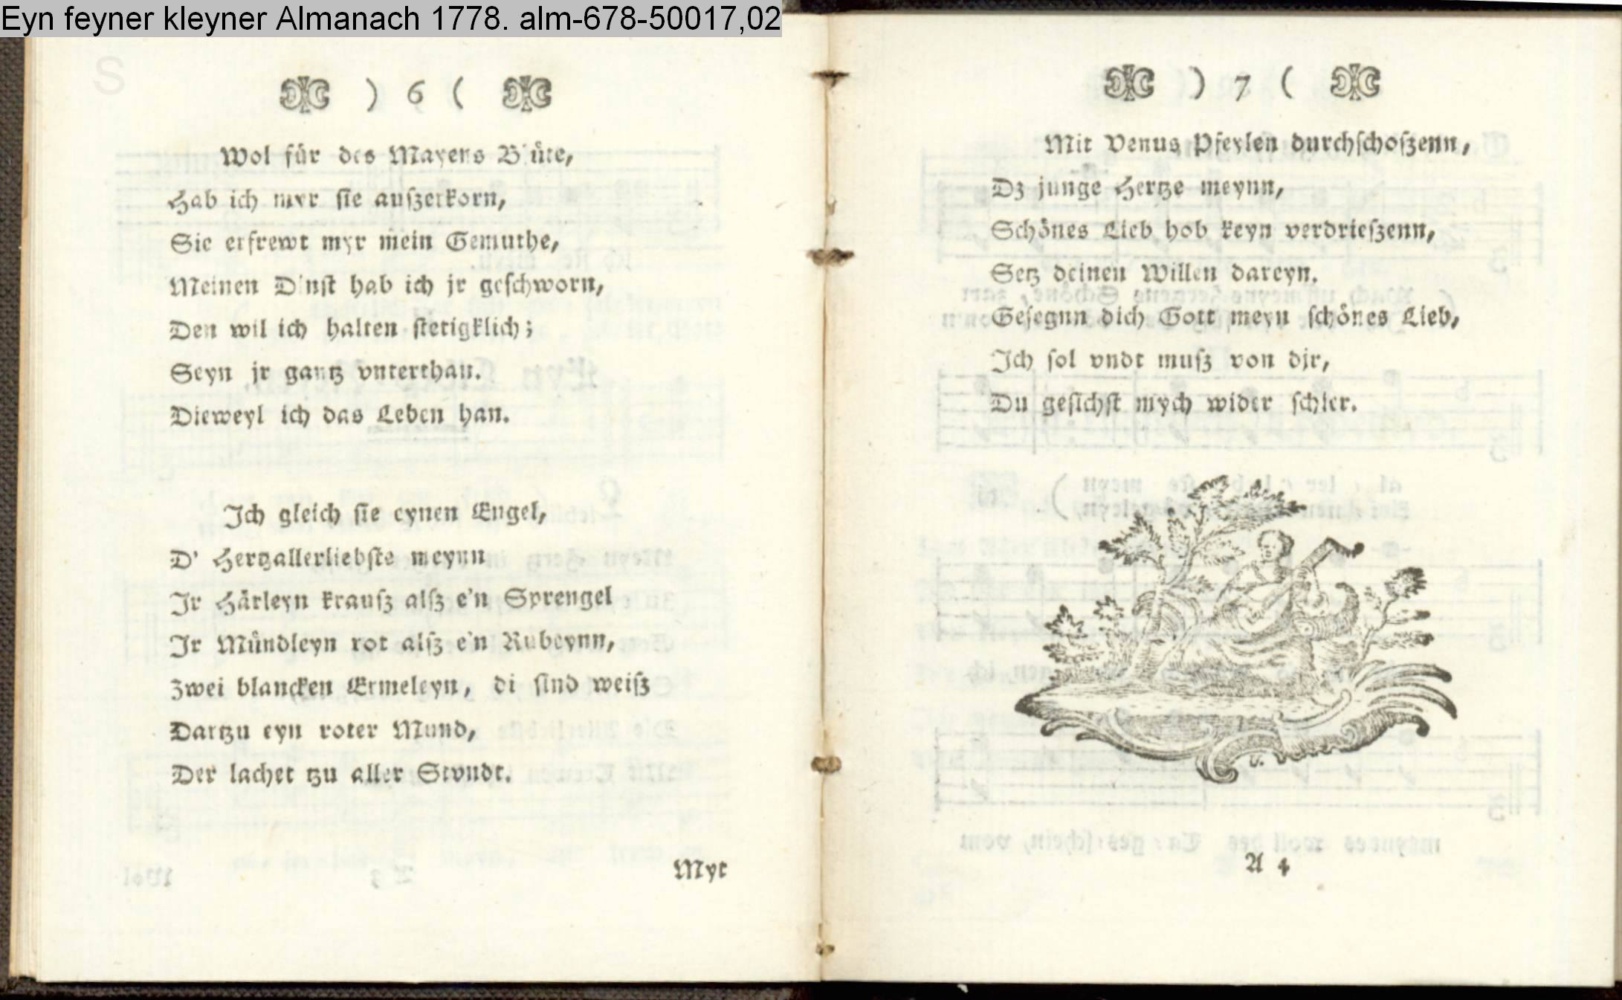 Eyn feyner kleyner Almanach 1778. alm-678-50017,02
) 6 (
Wol für des Mayens Blüte,
Hab ich myr sie auſzerkorn,
Sie erfrewt myr mein Gemuthe,
Meinen Dinst hab ich jr geſchworn,
Den wil ich halten ſtetigklich;
Seyn jr gantz vnterthan.
Dieweyl ich das Leben han.
Ich gleich ſie eynen Engel,
D' Hertzallerliebſte meynn
Ir Härleyn krauſz alſz e'n Sprengel
Ir Mündleyn rot alſz e'n Rubeynn,
Zwei blancken Ermeleyn, di ſind weiſz
Dartzu eyn roter Mund,
Der lachet tzu aller Stvndt.
Myt
) 7 (
Mit Venus Pfeylen durchſchoſzenn,
Dz junge Hertze meynn,
Schönes Lieb hob keyn verdrieſzenn,
Setz deinen Willen dareyn.
Geſegnn dich Gott meyn ſchönes Lieb,
Ich ſol vndt muſz von dir,
Du geſichſt mych wider ſchier.
A 4